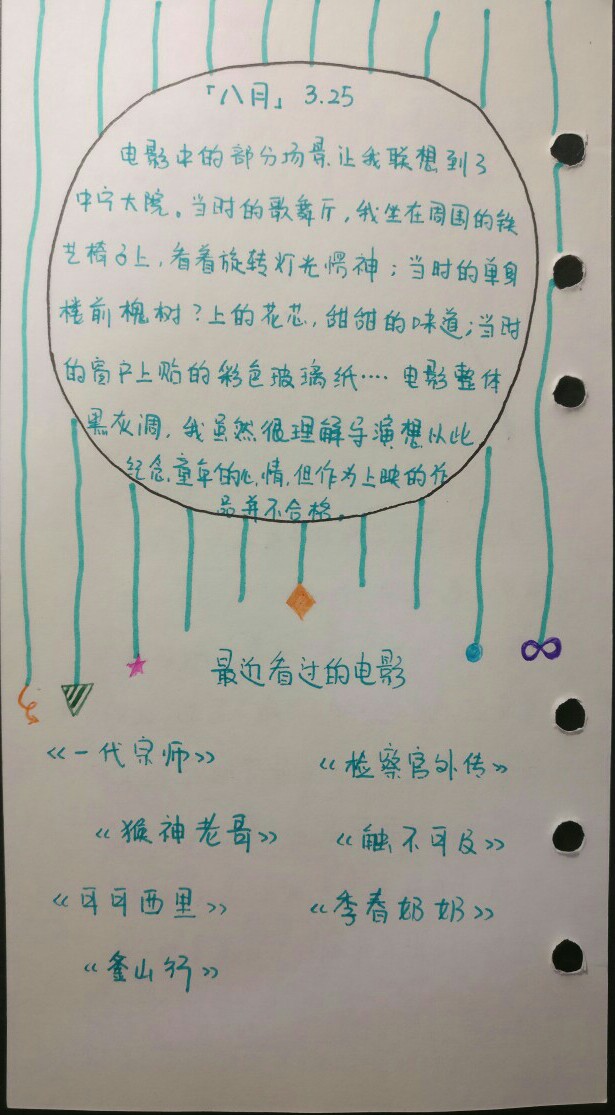 「八月」 3.25
电影中的部分场景让我联想到了
中宁大院。当时的歌舞厅,我坐在周围的铁
艺椅子上,看着旋转灯光愣神;当时的单身
楼前槐树?上的花芯,甜甜的味道;当时
的窗户上贴的彩色玻璃纸…… 电影整体
黑灰调,我虽然很理解导演想以此
纪念童年的心情,但作为上映的作
品并不合格。
最近看过的电影
《一代宗师》 《检察官外传》
《猴神老哥》 《触不可及》
《可可西里》 《季春奶奶》
《釜山行》